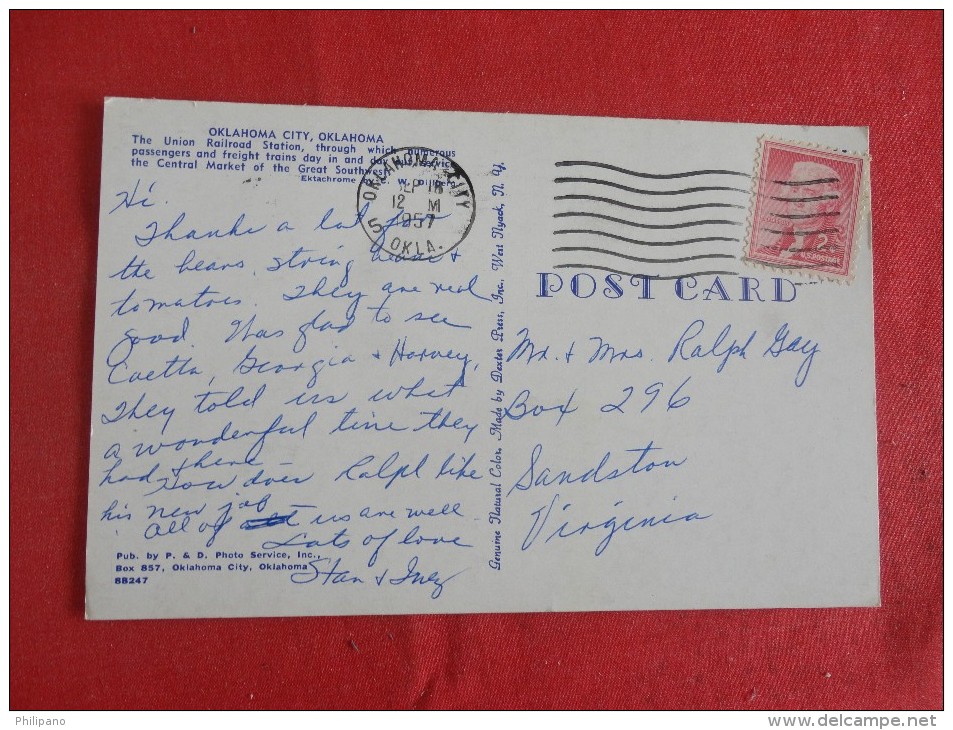 OKLAHOMA CITY, OKLAHOMA
The Union Railroad Station, through which numerous
passengers and freight trains day in and day
the Central Market of the Great Southwest.
Ektachrome W.
OKLAHOMA CITY
SEP 18
12 M
1957
5 OKLA.
2¢
U.S. POSTAGE
Hi.
Thanks a lot for
the beans, string beans &
tomatoes. They are real
good. Was glad to see
Coetta, Georgia & Harvey,
They told us what
a wonderful time they
had there
How does Ralph like
his new job
All of us are well
Lots of love
Stan & Inez
Pub. by P. & D. Photo Service, Inc.,
Box 857, Oklahoma City, Oklahoma
88247
Genuine Natural Color. Made by Dexter Press, Inc. West Nyack, N. Y.
POST CARD
Mr. & Mrs. Ralph Gay
Box 296
Sandston
Virginia
Philipano
www.delcampe.net